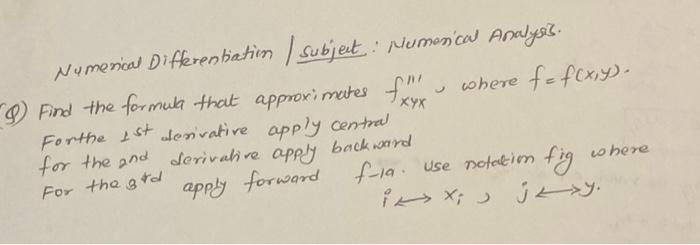 Numerical Differentiation / Subject: Numerical Analysis.
Q) Find the formula that approximates f'''xyx, where f=f(x,y).
For the 1st derivative apply central
for the 2nd derivative apply backward
For the 3rd apply forward f-la. Use notation fij where
i ⟷ xi, j ⟷ y.